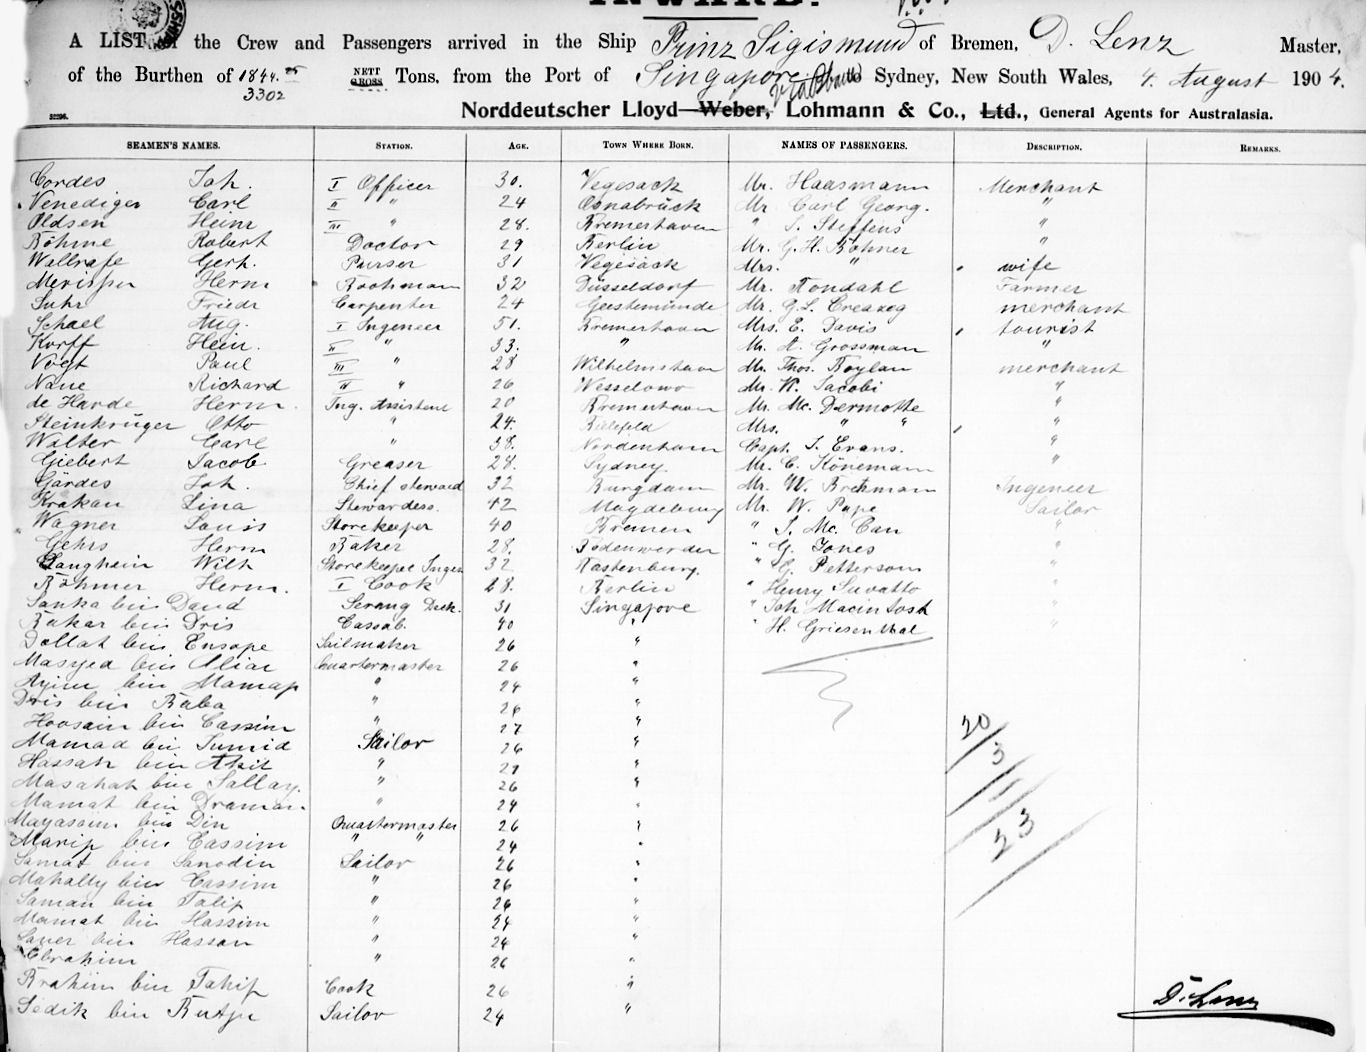 INWARD.
A LIST of the Crew and Passengers arrived in the Ship Prinz Sigismund of Bremen, D. Lenz Master,
of the Burthen of 1844. NETT GROSS Tons, from the Port of Singapore to Sydney, New South Wales, 4. August 1904.
3302
Norddeutscher Lloyd Weber, Lohmann & Co., Ltd., General Agents for Australasia.
SEAMEN'S NAMES. STATION. AGE. TOWN WHERE BORN. NAMES OF PASSENGERS. DESCRIPTION. REMARKS.
Cordes Joh. I Officer 30. Vegesack Mr. Haasmann Merchant
Venediger Carl II " 24 Osnabrück Mr Carl Georg. "
Oldsen Heinr III " 28. Bremerhaven " S. Steffens "
Böhme Robert Doctor 29 Berlin Mr. G. H. Bohner "
Wallrafe Gerh. Purser 31 Vegesack Mrs. " wife
Herm 32 Düsseldorf Mr. Rondahl Farmer
Suhr Friedr Carpenter 24 Geestemünde Mr. G. L. merchant
Schael Aug. I Ingeneer 51. Bremerhaven Mrs. E. Davis tourist
Korff Hein. II " 33. " Mr. A. Grossman "
Vogt Paul III " 28 Wilhelmshaven Mr. Thos. Boylan merchant
Richard " 26 Mr. W. Jacobi "
de Harde Herm. Ing. Assistent 20 Bremerhaven Mr. Mc. Dermotte "
Steinkrüger Otto " 24. Bielefeld Mrs. " " "
Walter Carl " 38. Nordenham Capt. S. Evans. "
Giebert Jacob Greaser 28. Sydney. Mr. C. Hönemann "
Gärdes Joh. Chief steward 32 Burgdam Mr. W. Brethmann Ingeneer
Krakau Lina Stewardess. 42 Magdeburg Mr. W. Pape Sailor
Wagner Louis Storekeeper 40 Bremen " J. Mc. Can "
Gehrs Herm Baker 28. Bodenwerder " G. Jones "
Langhein Wilh Storekeeper Ingen 32 Rastenburg. " C. Petterson "
Böhmer Herm. I Cook 28. Berlin " Henry "
Sanka bin Daud Serang Deck. 31 Singapore " Joh. Macintosh "
Bakar bin Dris Cassab. 40 " " H. Griesenthal "
Dollat bin Sailmaker 26 "
bin Aliar Quartermaster 26 "
bin Mamap " 24 "
Dris bin Baba " 26 "
Hoosain bin Cassim " 27 "
Mamad bin Sumid Sailor 26 "
Hassan bin Akil " 21 "
bin Sallay. " 26 "
Mamat bin Draman. " 24 "
bin Din Quartermaster 26 "
Marip bin Cassim " " 24 "
Samat bin Sanodin Sailor 26 "
Mahally bin Cassim " 26 "
Saman bin Talip " 26 "
Mamat bin Hassim " 24 "
bin Hassan " 24 "
Ebrahim " 26 "
Brahim bin Tahip Cook 26 "
Sedik bin Sailor 24 "
20
3
23
D. Lenz